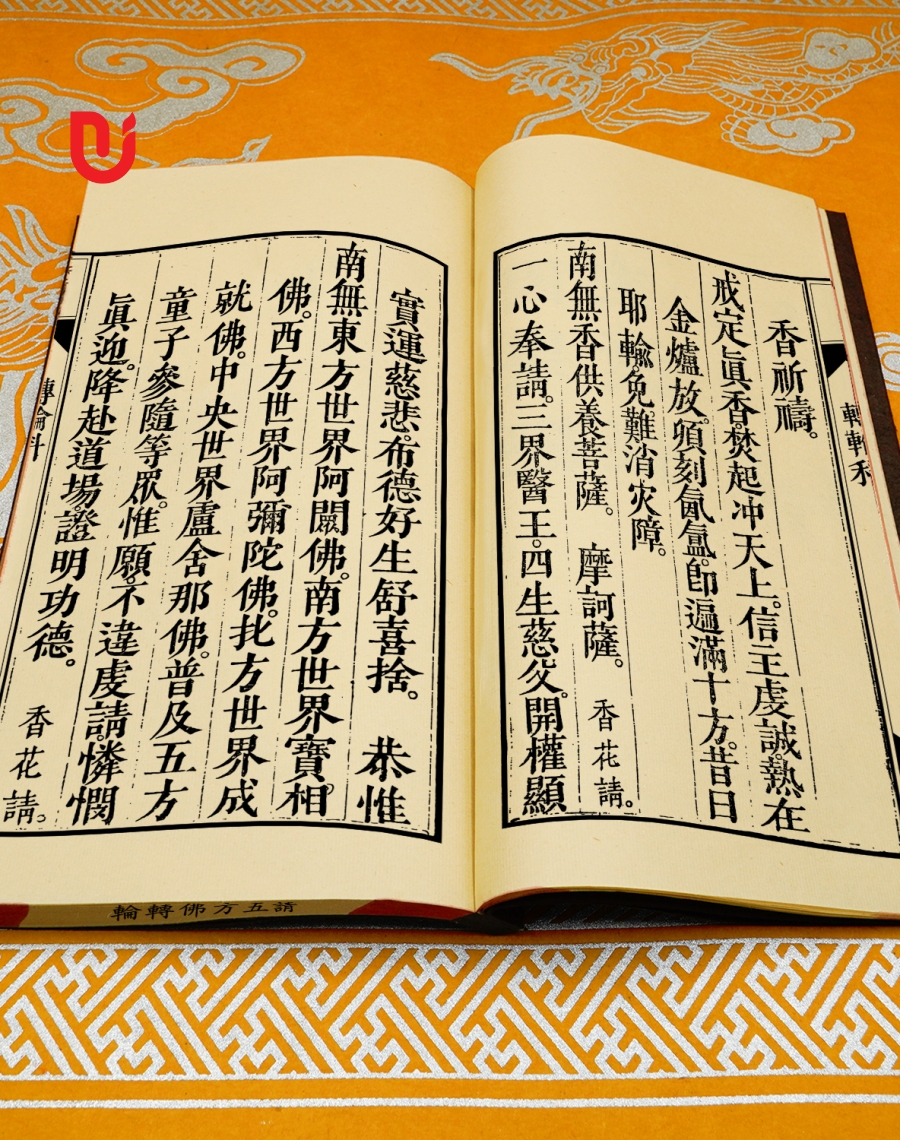 香祈禱。
戒定眞香。焚起冲天上。信主虔誠。熱在
金爐放。頃刻氤氳。卽遍滿十方。昔日
耶輸。免難消灾障。
南無香供養菩薩。 摩訶薩。 香花請。
一心奉請。三界醫王。四生慈父。開權顯
實運慈悲。布德好生舒喜捨。 恭惟
南無東方世界阿閦佛。南方世界寶相
佛。西方世界阿彌陀佛。北方世界成
就佛。中央世界盧舍那佛。普及五方
童子參隨等眾。惟願。不違虔請。憐憫
眞迎。降赴道場。證明功德。 香花請。
請五方佛轉輪